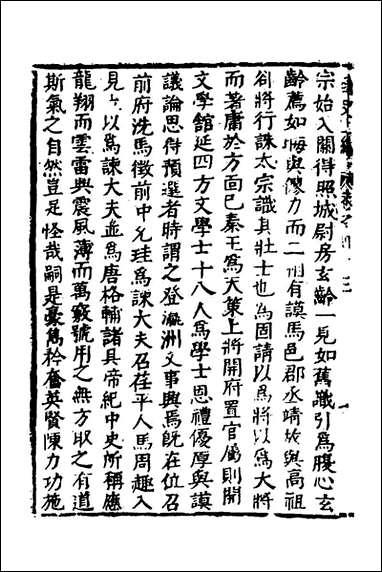 宗始入關得隰城尉房玄齡一見如舊識引爲腹心玄
齡薦如晦與儉力而二州有謨馬邑郡丞靖故與高祖
𨚫將行誅太宗識其壯士也爲固請以爲將以爲大將
而著庸於方面已秦王爲天策上將開府置官屬則開
文學館延四方文學士十八人爲學士恩禮優厚與謨
議論思件預選者時謂之登瀛洲文事興焉旣在位召
前府洗馬徵前中允珪爲諫大夫召荏平人馬周趣入
見以爲諫大夫並爲唐格輔諸具帝紀中史所稱應
龍翔而雲雷與震風薄而萬竅號用之無方取之有道
斯氣之自然豈足怪哉嗣是豪雋袊奮英賢陳力功施